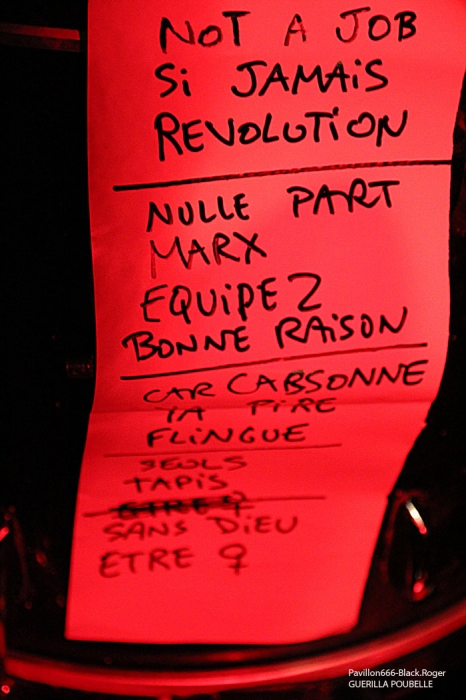 NOT A JOB
Si JAMAiS
REVOLUTiON
NULLE PART
MARX
EQUiPE 2
BONNE RAiSON
CAR CABSONNE
TA PiRE
FLiNGUE
SEULS
TAPiS
ETRE ♀
SANS DiEU
ETRE ♀
Pavillon666-Black.Roger
GUERILLA POUBELLE